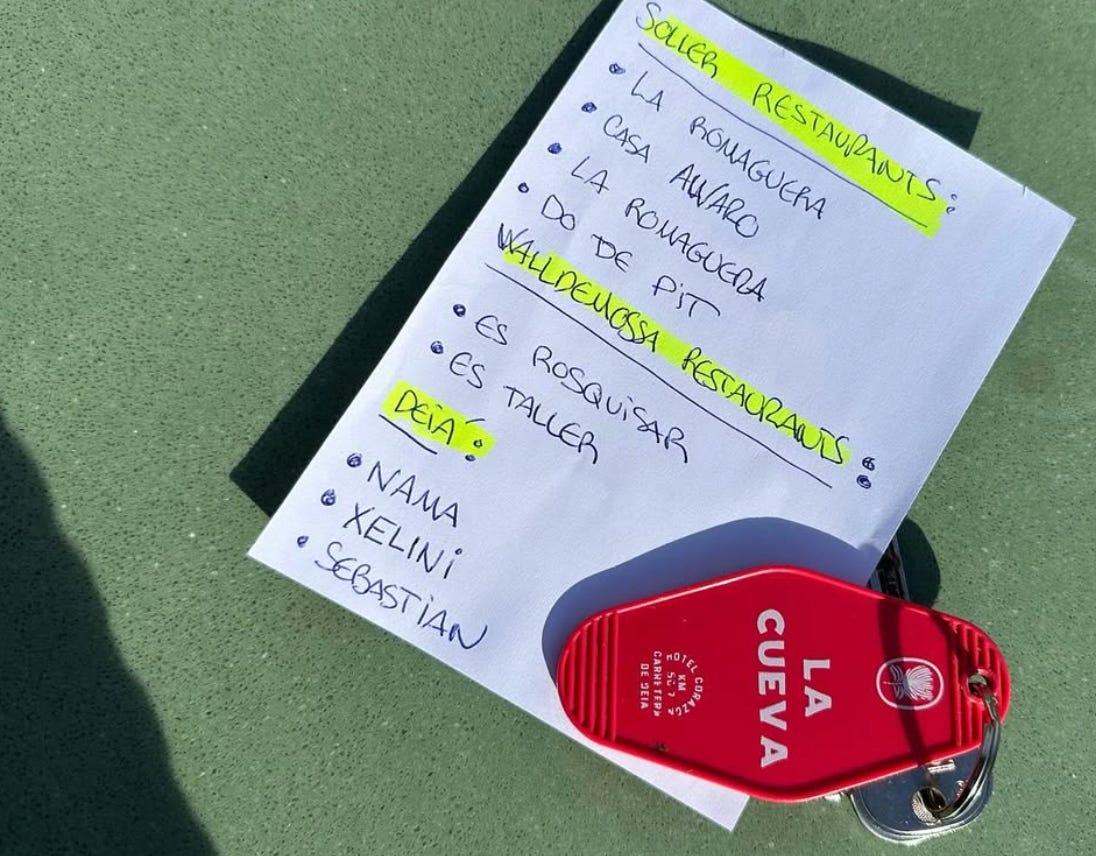 SOLLER RESTAURANTS:
• LA ROMAGUERA
• CASA ALVARO
• LA ROMAGUERA
• DO DE PIT
WALLDEMOSSA RESTAURANTS:
• ES ROSQUISAR
• ES TALLER
DEIÁ:
• NAMA
• XELINI
• SEBASTIAN
LA
CUEVA
HOTEL CORAZÓN
KM
CARRETERA
DE DEIA